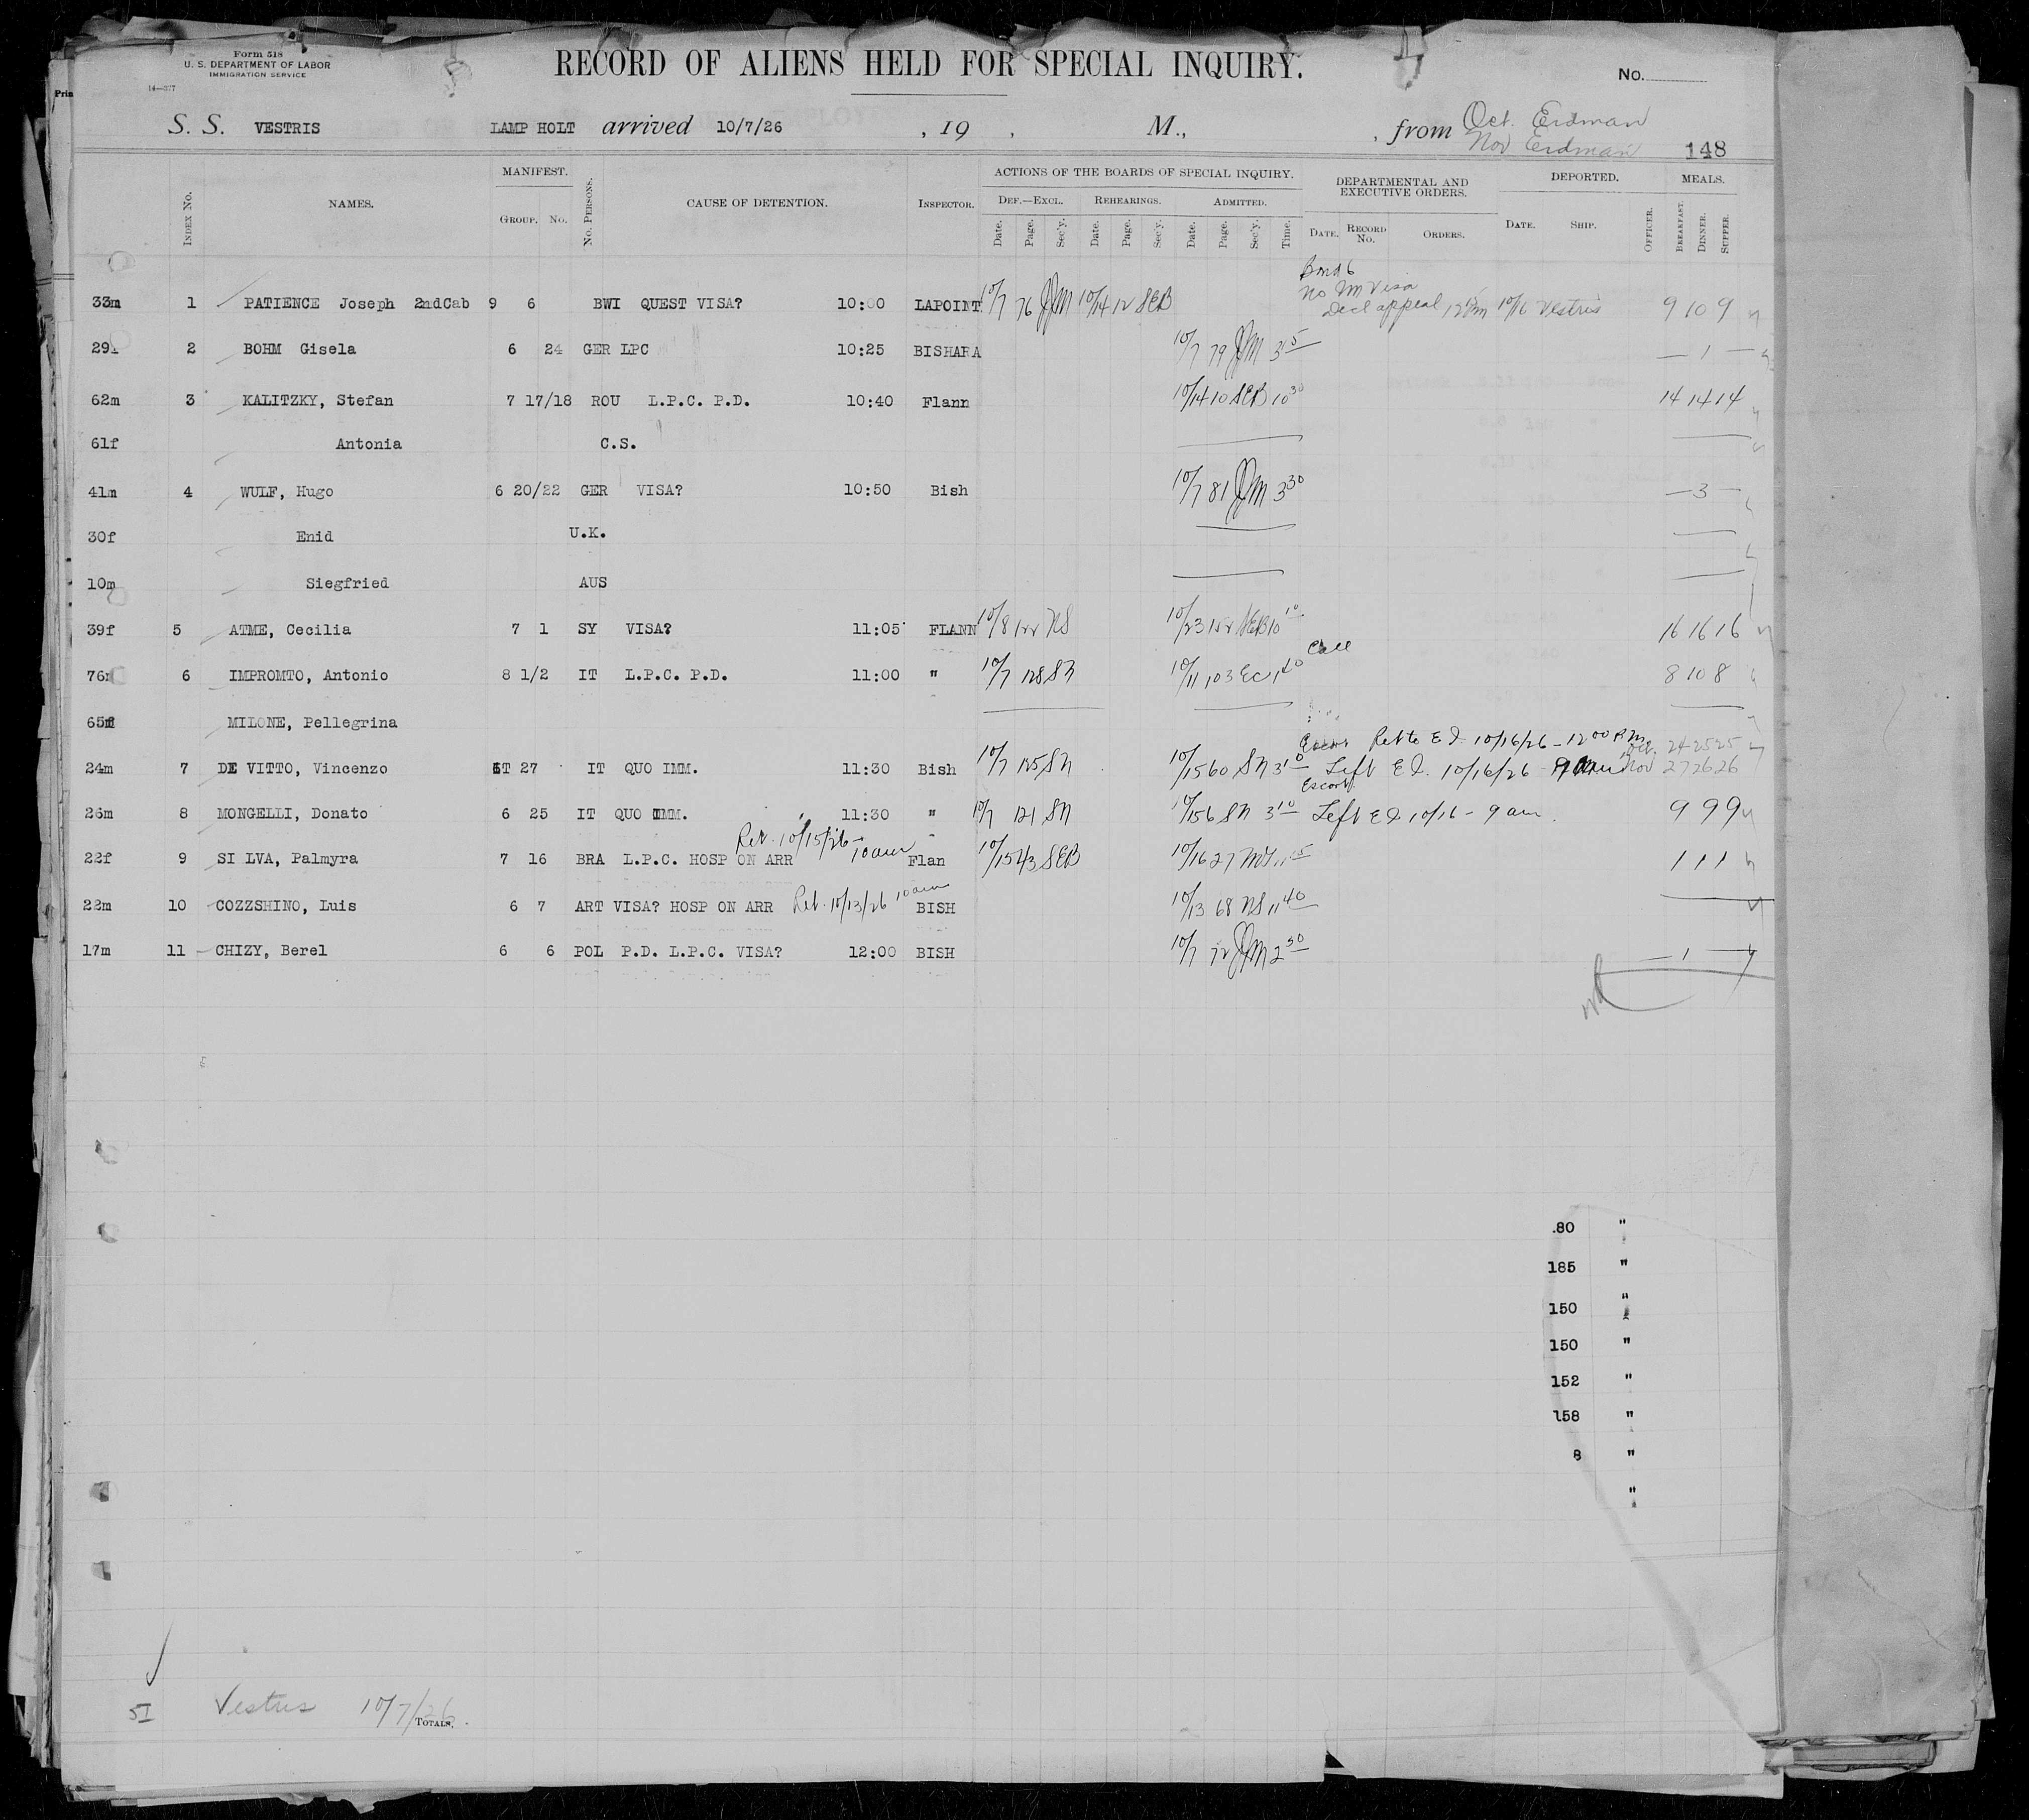 Form 518
U. S. DEPARTMENT OF LABOR
IMMIGRATION SERVICE
RECORD OF ALIENS HELD FOR SPECIAL INQUIRY.
No.
Prin
S. S. VESTRIS LAMP HOLT arrived 10/7/26 , 19 , M., , from Oct. Erdman
Nov Erdman 148
INDEX NO. NAMES. MANIFEST. GROUP. NO. NO. PERSONS. CAUSE OF DETENTION. INSPECTOR. ACTIONS OF THE BOARDS OF SPECIAL INQUIRY. DEF.—EXCL. REHEARINGS. ADMITTED. DEPARTMENTAL AND EXECUTIVE ORDERS. DEPORTED. MEALS.
Date. Page. Sec'y. Date. Page. Sec'y. Date. Page. Sec'y. Time. DATE. RECORD NO. ORDERS. DATE. SHIP. OFFICER. BREAKFAST. DINNER. SUPPER.
No Im Visa
33m 1 PATIENCE Joseph 2ndCab 9 6 BWI QUEST VISA? 10:00 LAPOINT 10/7 76 JJM 10/14 12 SEB Decl appeal 10/16 Vestris 9 10 9
29f 2 BOHM Gisela 6 24 GER LPC 10:25 BISHARA 10/7 79 JJM 3 15 — 1 —
62m 3 KALITZKY, Stefan 7 17/18 ROU L.P.C. P.D. 10:40 Flann 10/14 10 SEB 10 30 14 14 14
61f Antonia C.S.
41m 4 WULF, Hugo 6 20/22 GER VISA? 10:50 Bish 10/7 81 JJM 3 30 — 3 —
30f Enid U.K.
10m Siegfried AUS
39f 5 ATME, Cecilia 7 1 SY VISA? 11:05 FLANN 10/8 122 NS 10/23 152 SEB 10 10 16 16 16
Call
76m 6 IMPROMTO, Antonio 8 1/2 IT L.P.C. P.D. 11:00 " 10/7 128 SN 10/11 103 EC 1 40 8 10 8
65f MILONE, Pellegrina
Escort Ret to E I. 10/16/26 - 12 00 P.M. Oct. 24 25 25
24m 7 DE VITTO, Vincenzo 6 27 IT QUO IMM. 11:30 Bish 10/7 125 SN 10/15 60 SN 3 10 Left E I. 10/16/26 - Nov 27 26 26
Escort
26m 8 MONGELLI, Donato 6 25 IT QUO IMM. 11:30 " 10/7 121 SN 10/15 6 SN 3 10 Left E I 10/16 - 9 am. 9 9 9
Ret. 10/15/26 - 10 am
22f 9 SI LVA, Palmyra 7 16 BRA L.P.C. HOSP ON ARR Flan 10/15 43 SEB 10/16 27 11 15 1 1 1
22m 10 COZZSHINO, Luis 6 7 ART VISA? HOSP ON ARR Ret. 10/13/26 10 am BISH 10/13 68 NS 11 40
17m 11 CHIZY, Berel 6 6 POL P.D. L.P.C. VISA? 12:00 BISH 10/7 72 JJM 2 50 — 1 —
.80 "
185 "
150 "
150 "
152 "
158 "
8 "
"
SI Vestris 10/7/26
TOTALS.